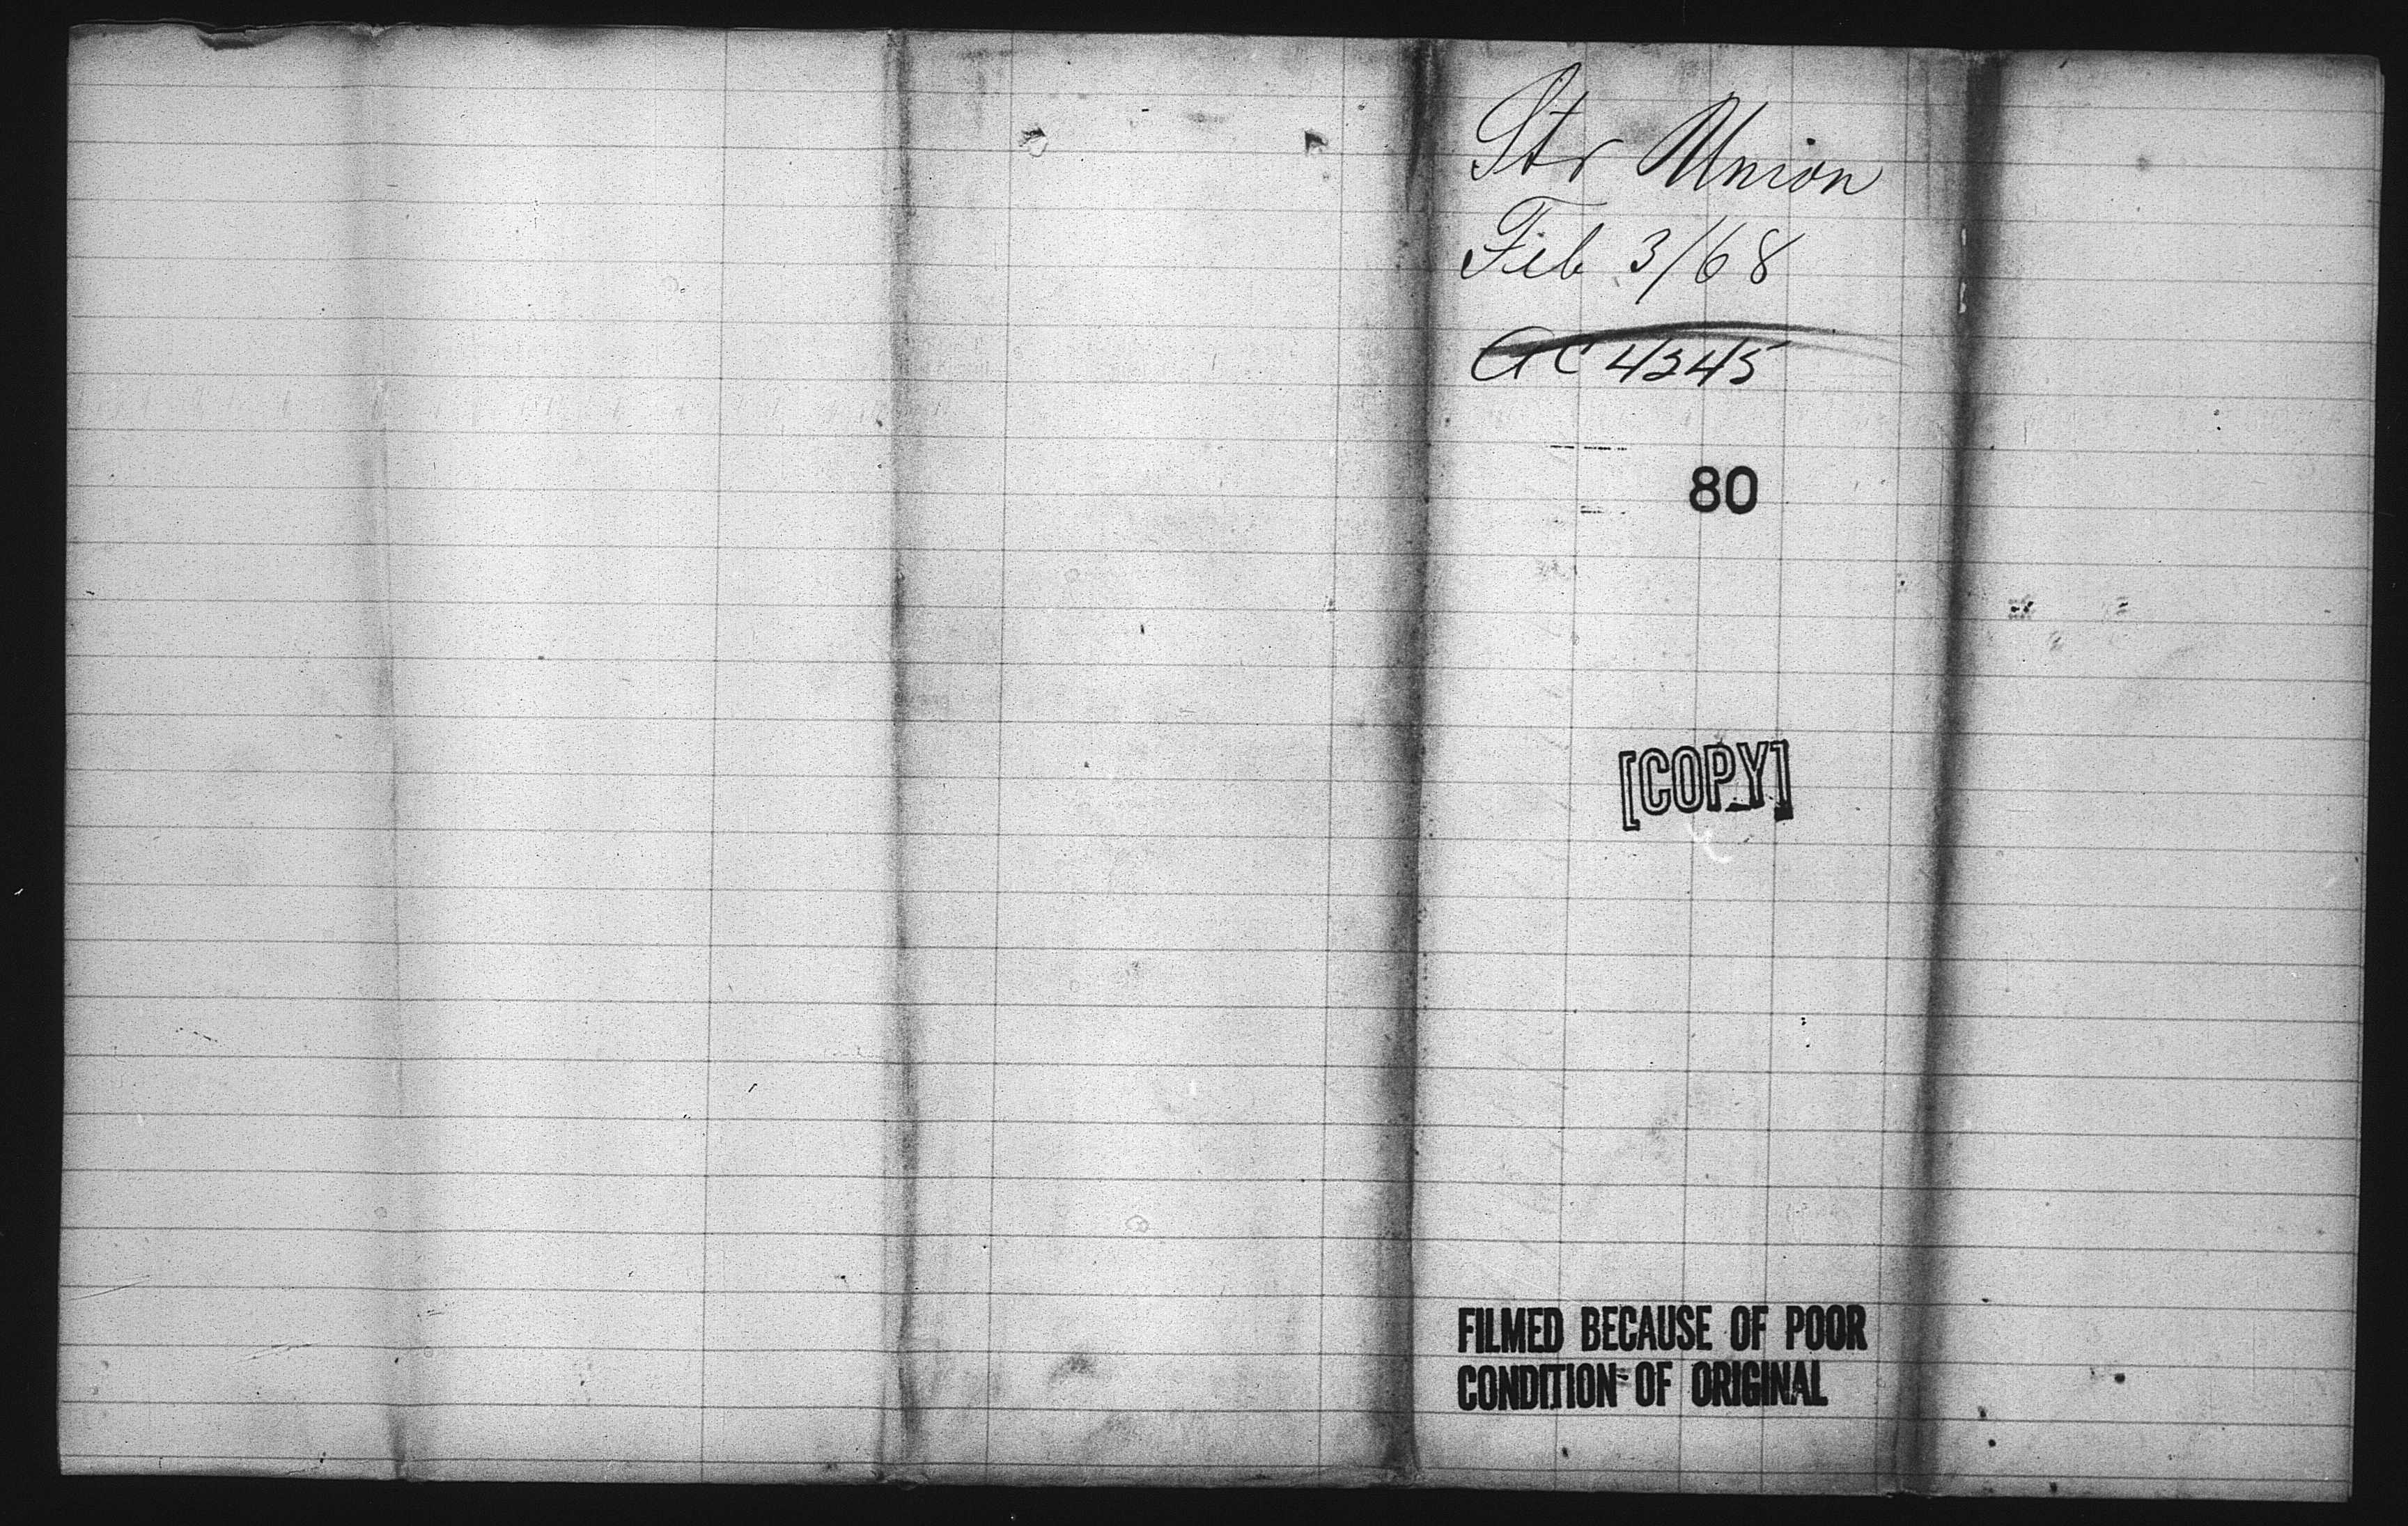 Str Union
Feb 3/68
AC 4245
80
[COPY]
FILMED BECAUSE OF POOR
CONDITION OF ORIGINAL